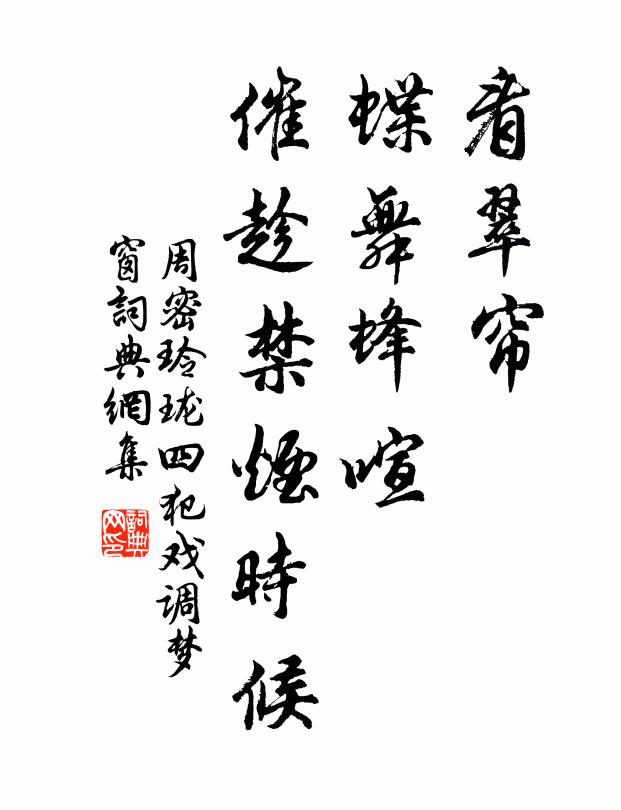 看翠帘
蝶舞蜂喧
催趁禁煙時候
周密玲珑四犯戏调梦
窗詞典網集
詞典
网印